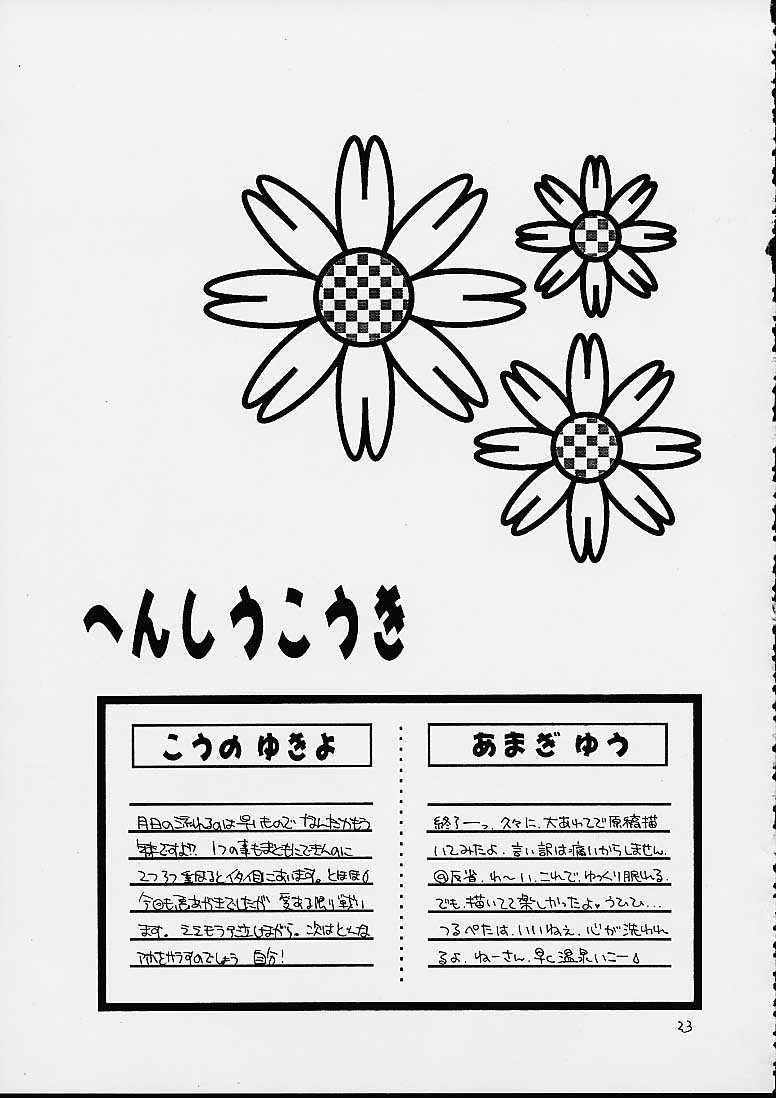 へんしうこうき
こうの ゆきよ
月日の流れるのは早いもので なんだかもう
年末ですよ!? 1つの事もまともにできんのに
2つ3つ重なるとイタイ目にあいます。とほほ
今回も悪あがきでしたが 愛ある限り戦い
ます。ミミモラテ泣しながら。次はどんな
アホをやらすのでしょう 自分!
あまぎ ゆう
終了ーっ。久々に、大あわてで原稿描
いてみたよ。言い訳は痛いからしません。
反省。わ〜い、これで、ゆっくり眠れる。
でも、描いてて楽しかったよ♥うひひ...
つるぺたは、いいねぇ、心が洗われ
るよ。ねーさん、早く温泉いこー♪
23